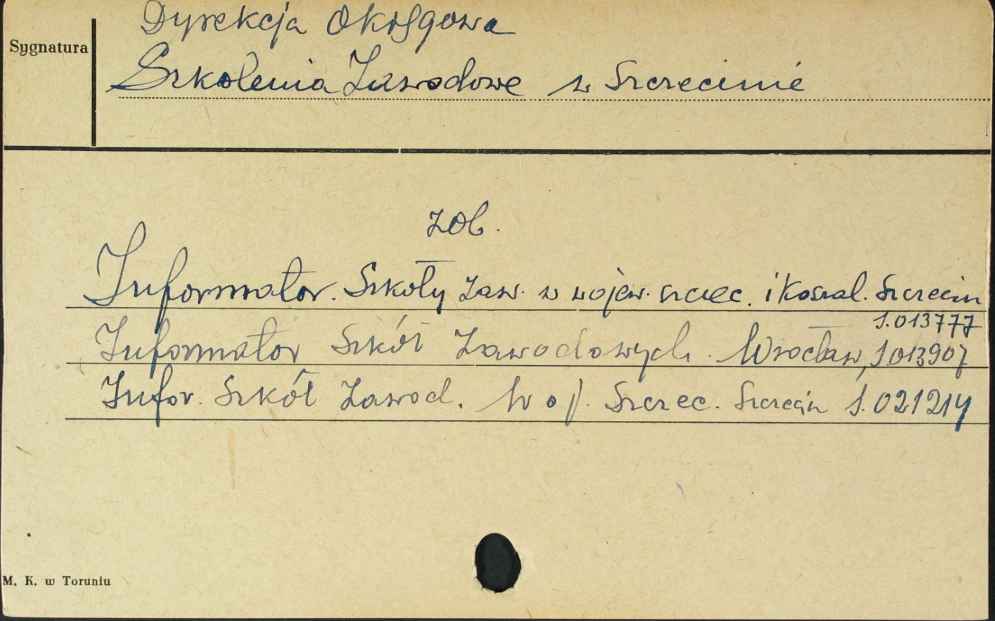 Dyrekcja Okręgowa
Sygnatura
Szkolenia Zawodowe w Szczecinie
zob.
Informator. Szkoły zaw. w wojew. szczec. i koszal. Szczecin
S.013777
Informator Szkół Zawodowych. Wrocław, S 013907
Infor. Szkół Zawod. Woj. Szczec. Szczecin S.021214
M. K. w Toruniu